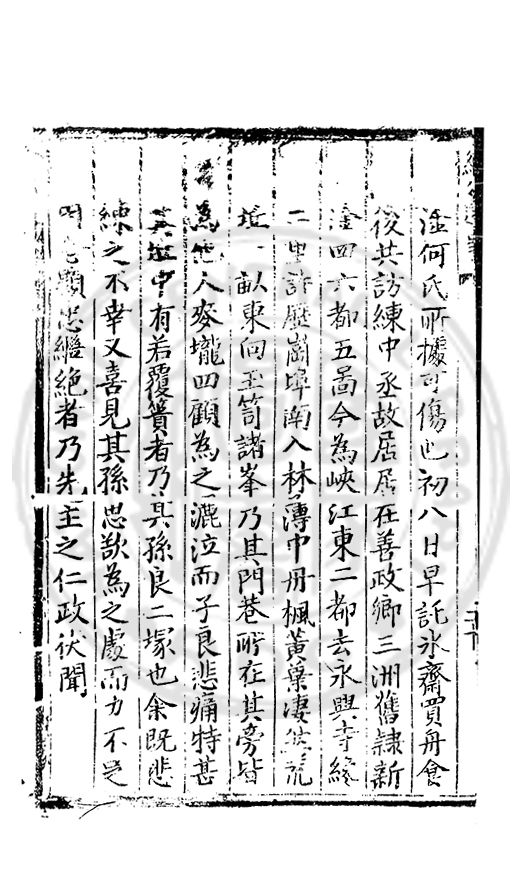 淦何氏所據可傷也初八日早託氷齋買舟食
後共訪練中丞故居居在善政鄉三洲舊隷新
淦四六都五啚今為峽江東二都去永興寺纔
二里許歷崗埠南入林薄中丹楓黃葉凄然荒
址一畝東向玉笥諸峯乃其門巷所在其旁皆
為他人麥壠四顧為之漉泣而子良悲痛特甚
其中有若覆簣者乃其孫良二塚也余既悲
練之不幸又喜見其孫思欲為之處而力不足
顯忠繼絶者乃先主之仁政伏聞